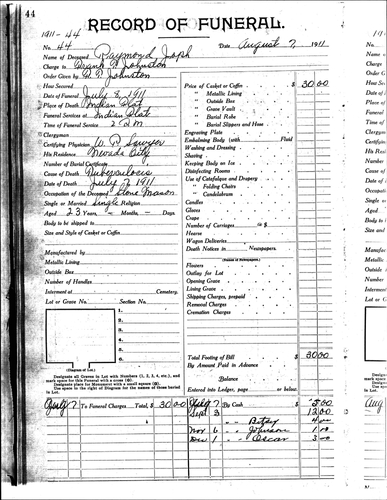 44
RECORD OF FUNERAL.
1911-44
No. 44 Date August 7, 1911
Name of Deceased Raymond Joph
Charge to Frank R Johnston
Order Given by F. R. Johnston
How Secured
Date of Funeral July 8, 1911
Place of Death Indian Flat
Funeral Services at Indian Flat
Time of Funeral Service 2 P.M.
Clergyman
Certifying Physician W. P. Sawyer
His Residence Nevada City
Number of Burial Certificate
Cause of Death Tuberculosis
Date of Death July 7, 1911
Occupation of the Deceased Stone Mason
Single or Married Single Religion
Aged 23 Years, - Months, - Days
Body to be shipped to
Size and Style of Casket or Coffin
Manufactured by
Metallic Lining
Outside Box
Number of Handles
Interment at Cemetery.
Lot or Grave No. Section No.
1.
2.
3.
4.
5.
6.
(Diagram of Lot.)
Designate all Graves in Lot with Numbers (1, 2, 3, 4, etc.), and
mark space for this Funeral with a cross
Designate place for Monument with a small square
Use space in the right of Diagram for the names of those buried
in Lot.
Price of Casket or Coffin $ 30 00
" Metallic Lining
" Outside Box
" Grave Vault
" Burial Robe
" Burial Slippers and Hose
Engraving Plate
Embalming Body (with Fluid)
Washing and Dressing
Shaving
Keeping Body on Ice
Disinfecting Rooms
Use of Catafalque and Drapery
" Folding Chairs
" Candelabrum
Candles
Gloves
Crape
Number of Carriages @ $
Hearse
Wagon Deliveries
Death Notices in Newspapers
(Names of Newspapers)
Flowers
Outlay for Lot
Opening Grave
Lining Grave
Shipping Charges, prepaid
Removal Charges
Cremation Charges
Total Footing of Bill $ 30 00
By Amount Paid in Advance
Balance
Entered into Ledger, page or below.
July 7 To Funeral Charges Total, $ 30 00
By Cash $ 5 00
Sept 3 12 00
" " Betsey 4 00
Nov 6 " " Johnson 1 00
Dec 1 " " Oscar 3 00
191
No.
Name of
Charge to
Order Giv
How Secu
Date of F
Place of
Funeral S
Time of F
Clergyman
Certifying
His Resid
Number o
Cause of
Date of D
Occupatio
Single or
Aged
Body to b
Size and
Manufact
Metallic L
Outside B
Number o
Interment
Lot or Gr
Aug